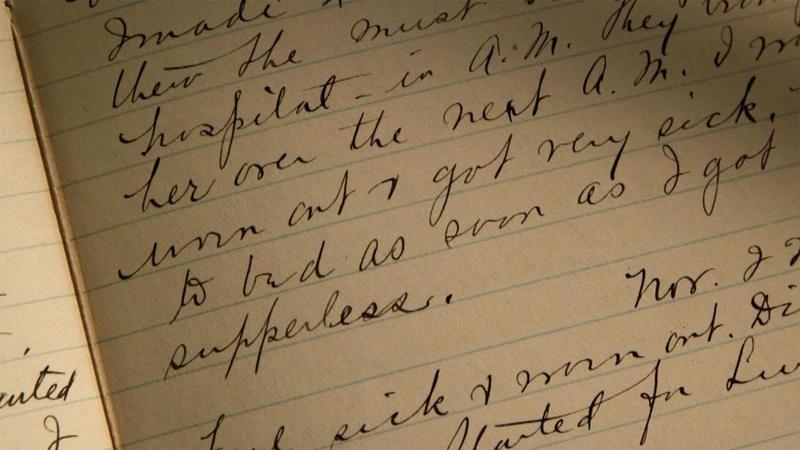 I made
then she must
hospital - in A.M. They
her over the next A.M. I
worn out & got very sick.
to bed as soon as I got
supperless.
Nov. 2
sick & worn out.
Started for